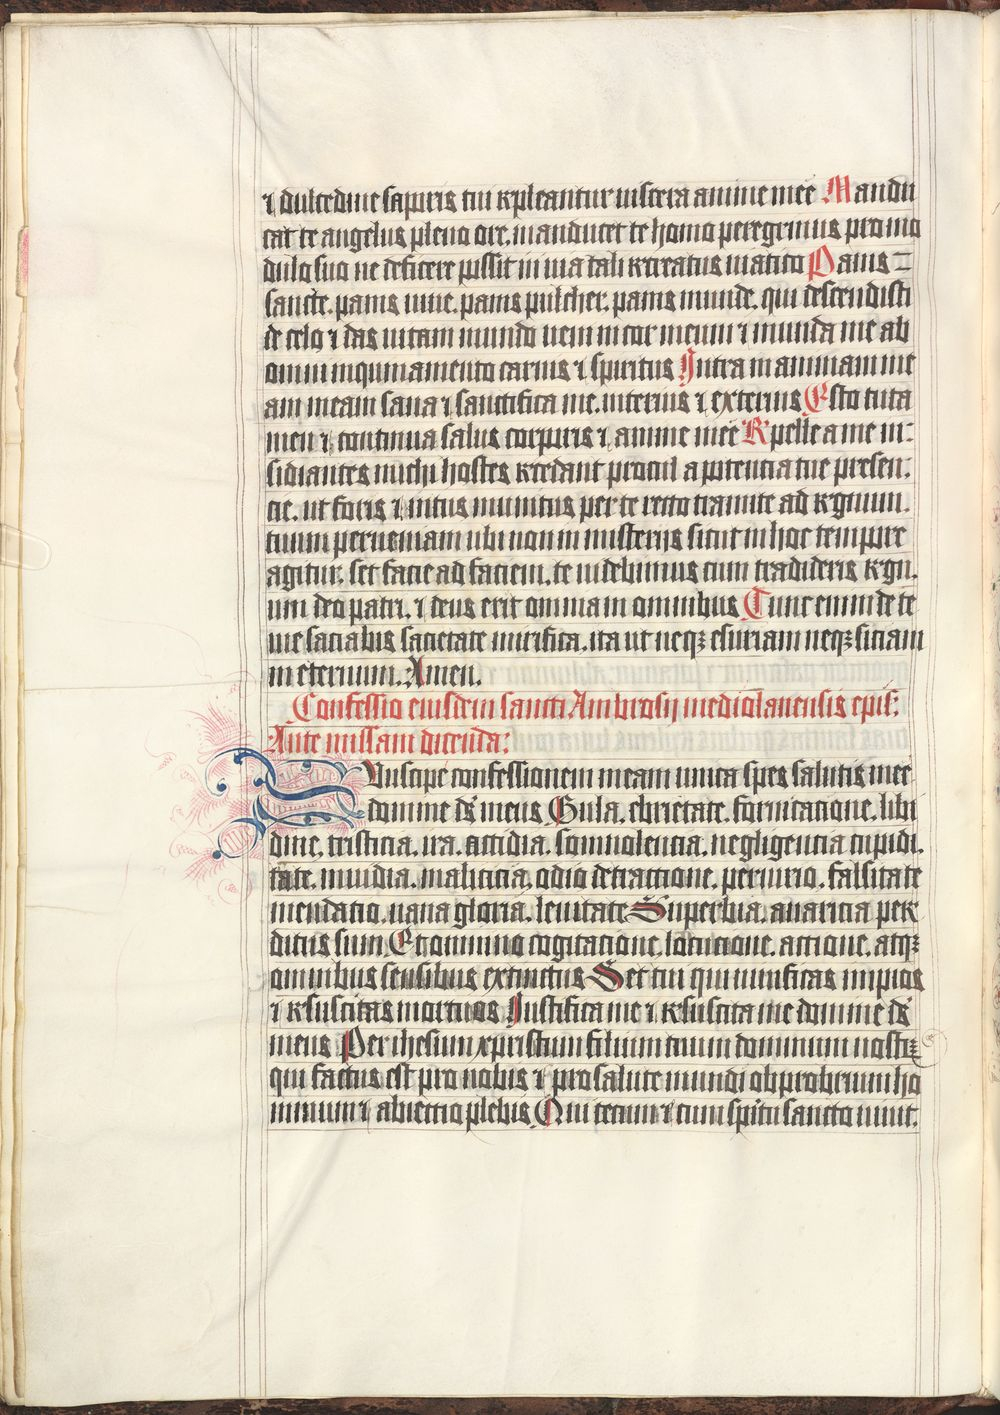 ⁊ dulcedine saporis tui repleantur uiscera anime mee Mandu
cat te angelus pleno ore. manducet te homo peregrinus pro mo
dulo suo ne deficere possit in uia tali recreatus uiatico Panis
sancte. panis uiue. panis pulcher. panis munde. qui descendisti
de celo ⁊ das uitam mundo ueni in cor meum ⁊ munda me ab
omni inquinamento carnis ⁊ spiritus Intra in animam me
am meam sana ⁊ sanctifica me. interius ⁊ exterius Esto tuta
men ⁊ continua salus corporis ⁊ anime mee Repelle a me in-
sidiantes michi hostes recedant procul a potencia tue presen-
cie. ut foris ⁊ intus munitus per te recto tramite ad regnum.
tuum perueniam ubi non in misteriis sicut in hoc tempore
agitur. set facie ad faciem. te uidebimus cum tradideris regn.
um deo patri. ⁊ deus erit omnia in omnibus Tunc enim de te
me saciabis sacietate mirifica. ita ut neqꝫ esuriam neqꝫ siciam
in eternum. Amen.
Confessio eiusdem sancti Ambrosij mediolanensis epis:
Ante missam dicenda:
Suscipe confessionem meam unica spes salutis mee
domine ds meus Gula. ebrietate. fornicatione. libi
dine. tristicia. ira. accidia. somnolencia. negligencia cupidi.
tate. inuidia. malicicia. odio detractione. periurio. falsitate
mendatio. uana gloria. leuitate Superbia. auaricia per
ditus sum Et omnino cogitacione. locucione. actione. atqꝫ
omnibus sensibus extinctus Set tu qui iustificas impios
⁊ resuscitas mortuos Iustifica me ⁊ resuscita me domine ds
meus Per ihesum xpristum filium tuum dominum nostrꝫ
qui factus est pro nobis ⁊ pro salute mundi obprobrium ho
minum ⁊ abiectio plebis Qui tecum ⁊ cum spiritu sancto uiuit.